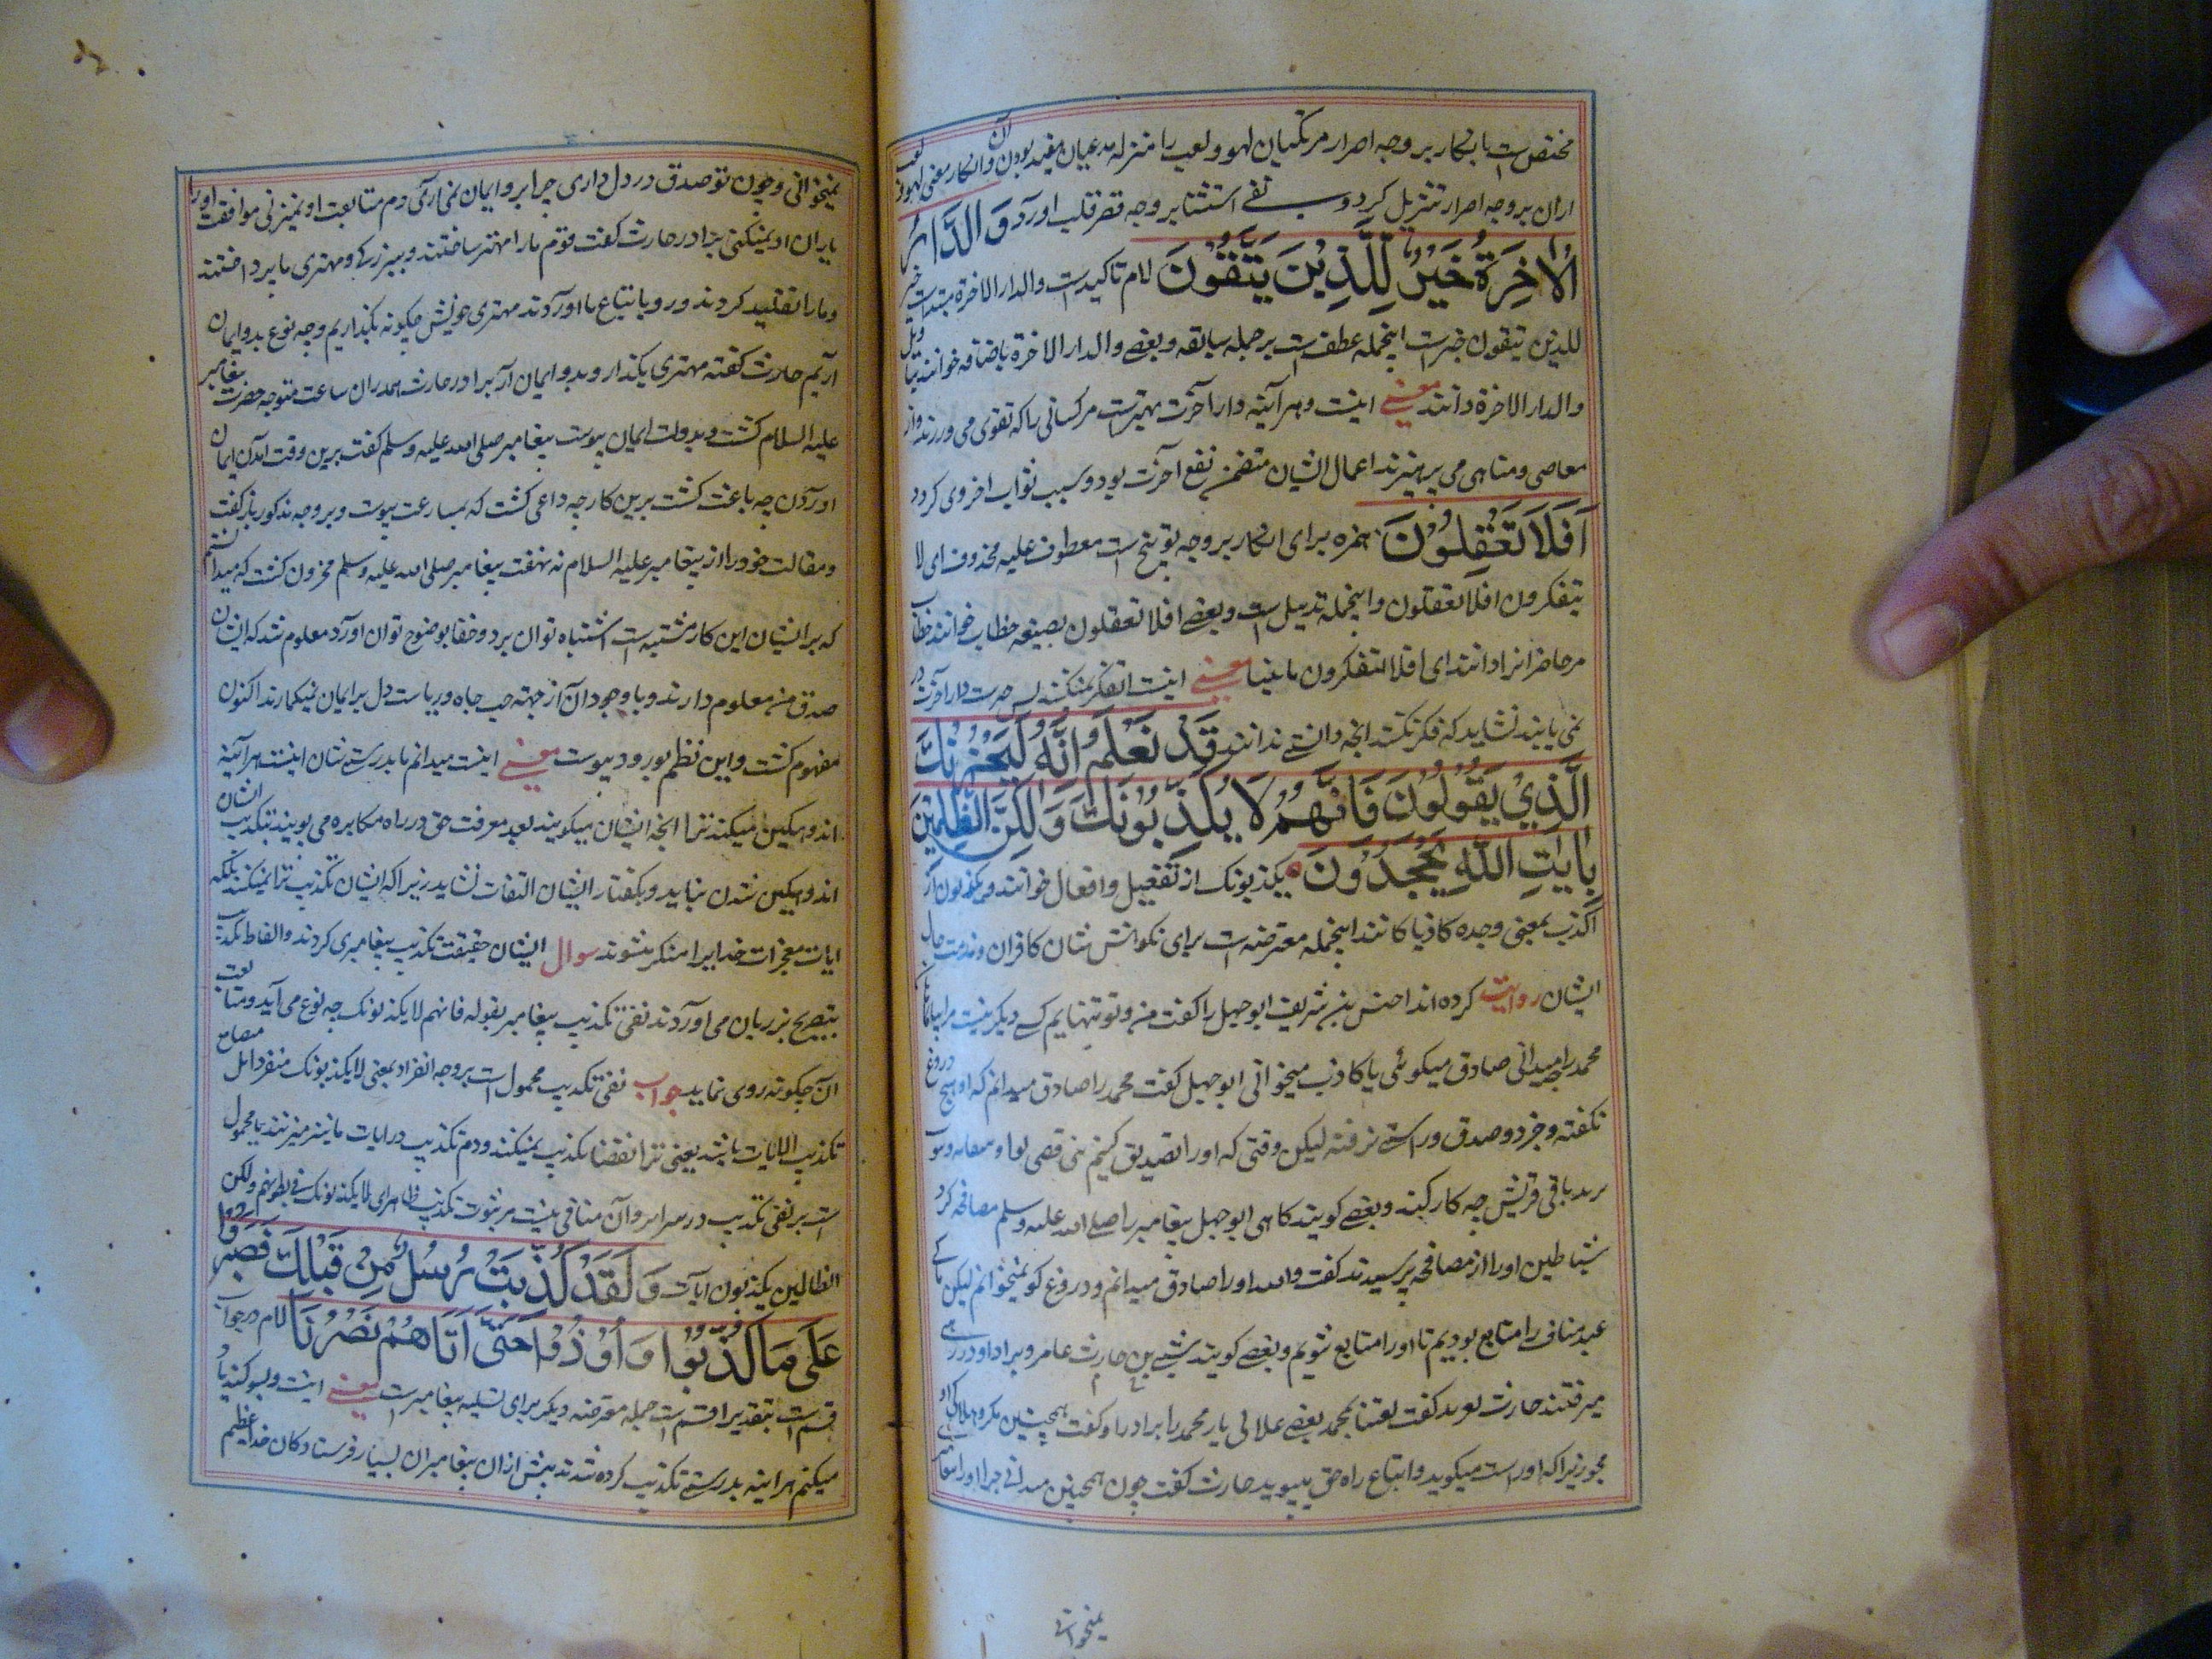 مختص است بانکار بر وجه اصرار مرتکبان لهو و لعب را منزله مدعیان مفید بودن آن و انکار معنی لهو
ازان بر وجه اصرار تنزیل کرد و نفی استثنا بر وجه قصر قلب آورد وَالدَّارُ
الْاٰخِرَةُ خَيْرٌ لِلَّذِيْنَ يَتَّقُوْنَ لام تاکیدست والدار الاخرة مبتداست خبر
للذین یتقون خبر است اینجمله عطف است بر جمله سابقه و بعضے والدار الاخرة باضافه خوانند
والدار الاخرة دانند معنے اینست و هر آینه دار آخرت بهترست مر کسانی را که تقوی می ورزند و از
معاصی و مناهی می پرهیزند اعمال ایشان متضمن نفع آخرت بود و سبب ثواب اخروی کردد
اَفَلَا تَعْقِلُوْنَ همزه برای انکار بر وجه توبیخ است معطوف علیه محذوف ای لا
یتفکرون افلا یعقلون و اینجمله تذییل است و بعضے افلا تعقلون بصیغه خطاب خوانند خطاب
مر حاضرانرا دانند ای افلا تتفکرون معنے اینست تفکر نمیکنند پس حسرت دار آخرت در
نمی یابند نشاید که فکر نکنند آنچه دانستے ندانند قَدْ نَعْلَمُ اِنَّهٗ لَيَحْزُنُكَ
الَّذِيْ يَقُوْلُوْنَ فَاِنَّهُمْ لَا يُكَذِّبُوْنَكَ وَلٰكِنَّ الظّٰلِمِيْنَ
بِاٰيٰتِ اللّٰهِ يَجْحَدُوْنَ یکذبونک از تفعیل و افعال خوانند و یکذبون از
اکذب بمعنی وجده کاذبا کانند اینجمله معترضه است برای نکوهش شان کافران و مذمت حال
ایشان روایت کرده اند اخنس بن شریف ابو جهل را کفت من و تو تنهایم کسے دیکر نیست مرا
محمد را میدانی صادق میکوئی یا کاذب میخوانی ابو جهل کفت محمد را صادق میدانم که او هیچ دروغ
نکفته و جز در صدق و راستے نرفته لیکن وقتی که اورا تصدیق کنیم بنی قصی
باقی قریش چه کار کنند و بعضے کویند کاهی ابو جهل پیغامبر را صلی الله علیه وسلم مصافحه کرد
شیاطین اورا از مصافحه پرسیدند کفت والله اورا صادق میدانم و دروغ کو نمیخوانم لیکن ما کے
عبد مناف را متابع بودیم تا اورا متابع شویم و بعضے کویند حارث عامر و برادر او در رهے
میرفتند حارث کفت بمحمد بعضے یار محمد را برادر او کفت همچنین مکو
مجوز زیرا که او راست میکوید و اتباع راه حق میپوید حارث کفت چون همچنین میدانے چرا اورا
نمیخوانی
نمیخوانی و چون تو صدق در دل داری چرا برو ایمان نمی آری دم متابعت او نمیزنی موافقت اورا
یاران او نمیکنی برادر حارث کفت قوم مارا مهتر ساختند و ببزرکے و مهتری ما پرداختند
و مارا تقلید کردند و رو باتباع ما آوردند مهتری خویش چکونه بکذاریم و چه نوع بدو ایمان
آریم حارث کفته مهتری بکذار و بدو ایمان آر برادر حارث همدران ساعت متوجه حضرت پیغامبر
علیه السلام کشت و بدولت ایمان پیوست پیغامبر صلی الله علیه وسلم کفت برین وقت آمدن ایمان
آوردن چه باعث کشت برین کار چه داعی کشت که بمسارعت پیوست و بر وجه مذکور باز کفت
و مقالت خود را از پیغامبر علیه السلام نه نهفت پیغامبر صلی الله علیه وسلم محزون کشت که میدانستم
که بر ایشان این کار مشتبه است اشتباه توان برد و خفا بوضوح توان آورد معلوم شد که ایشان
صدق من معلوم دارند و با وجود آن از جهت حب جاه و ریاست دل بر ایمان نمیکمارند اکنون
مفهوم کشت و این نظم بورود پیوست معنے اینست میدانم ما بدرستے شان اینست هر آینه
اندوهکین میکند ترا آنچه ایشان میکویند بعد معرفت حق در راه مکابره می پویند بتکذیب ایشان
اندوهکین شدن نباید و بکفتار ایشان التفات نشاید زیرا که ایشان تکذیب ترا نمیکنند بلکه
ایات معجزات خدایرا منکر میشوند سوال ایشان حقیقت تکذیب پیغامبری کردند و الفاظ تکذیب
بتصریح بر زبان می آوردند نفی تکذیب پیغامبر بقوله فانهم لا یکذبونک چه نوع می آید و متابعت
آن چکونه روی نماید جواب نفی تکذیب محمول است بر وجه انفراد بمعنی لا یکذبونک منفردا بل
تکذیب الایات باشد یعنی ترا تکذیب نمیکنند و دم تکذیب در ایات ما نیز میزنند یا محمول
است بر نفی تکذیب در سر ایر و آن منافی نیست مر ثبوت تکذیب ظاهر ای لا یکذبونک فی بطونهم ولکن
الظالمین یکذبون ایات وَلَقَدْ كُذِّبَتْ رُسُلٌ مِّنْ قَبْلِكَ فَصَبَرُوْا
عَلٰى مَا كُذِّبُوْا وَاُوْذُوْا حَتّٰى اَتَاهُمْ نَصْرُنَا لام در جواب
قسم است بتقدیر اقسم است جمله معترضه دیکر برای تسلیه پیغامبرست معنے اینست و سوکند یاد
میکنم هر اینه بدرستے تکذیب کرده شدند پیش ازان پیغامبران بسیار فرستادکان خدای عظیم